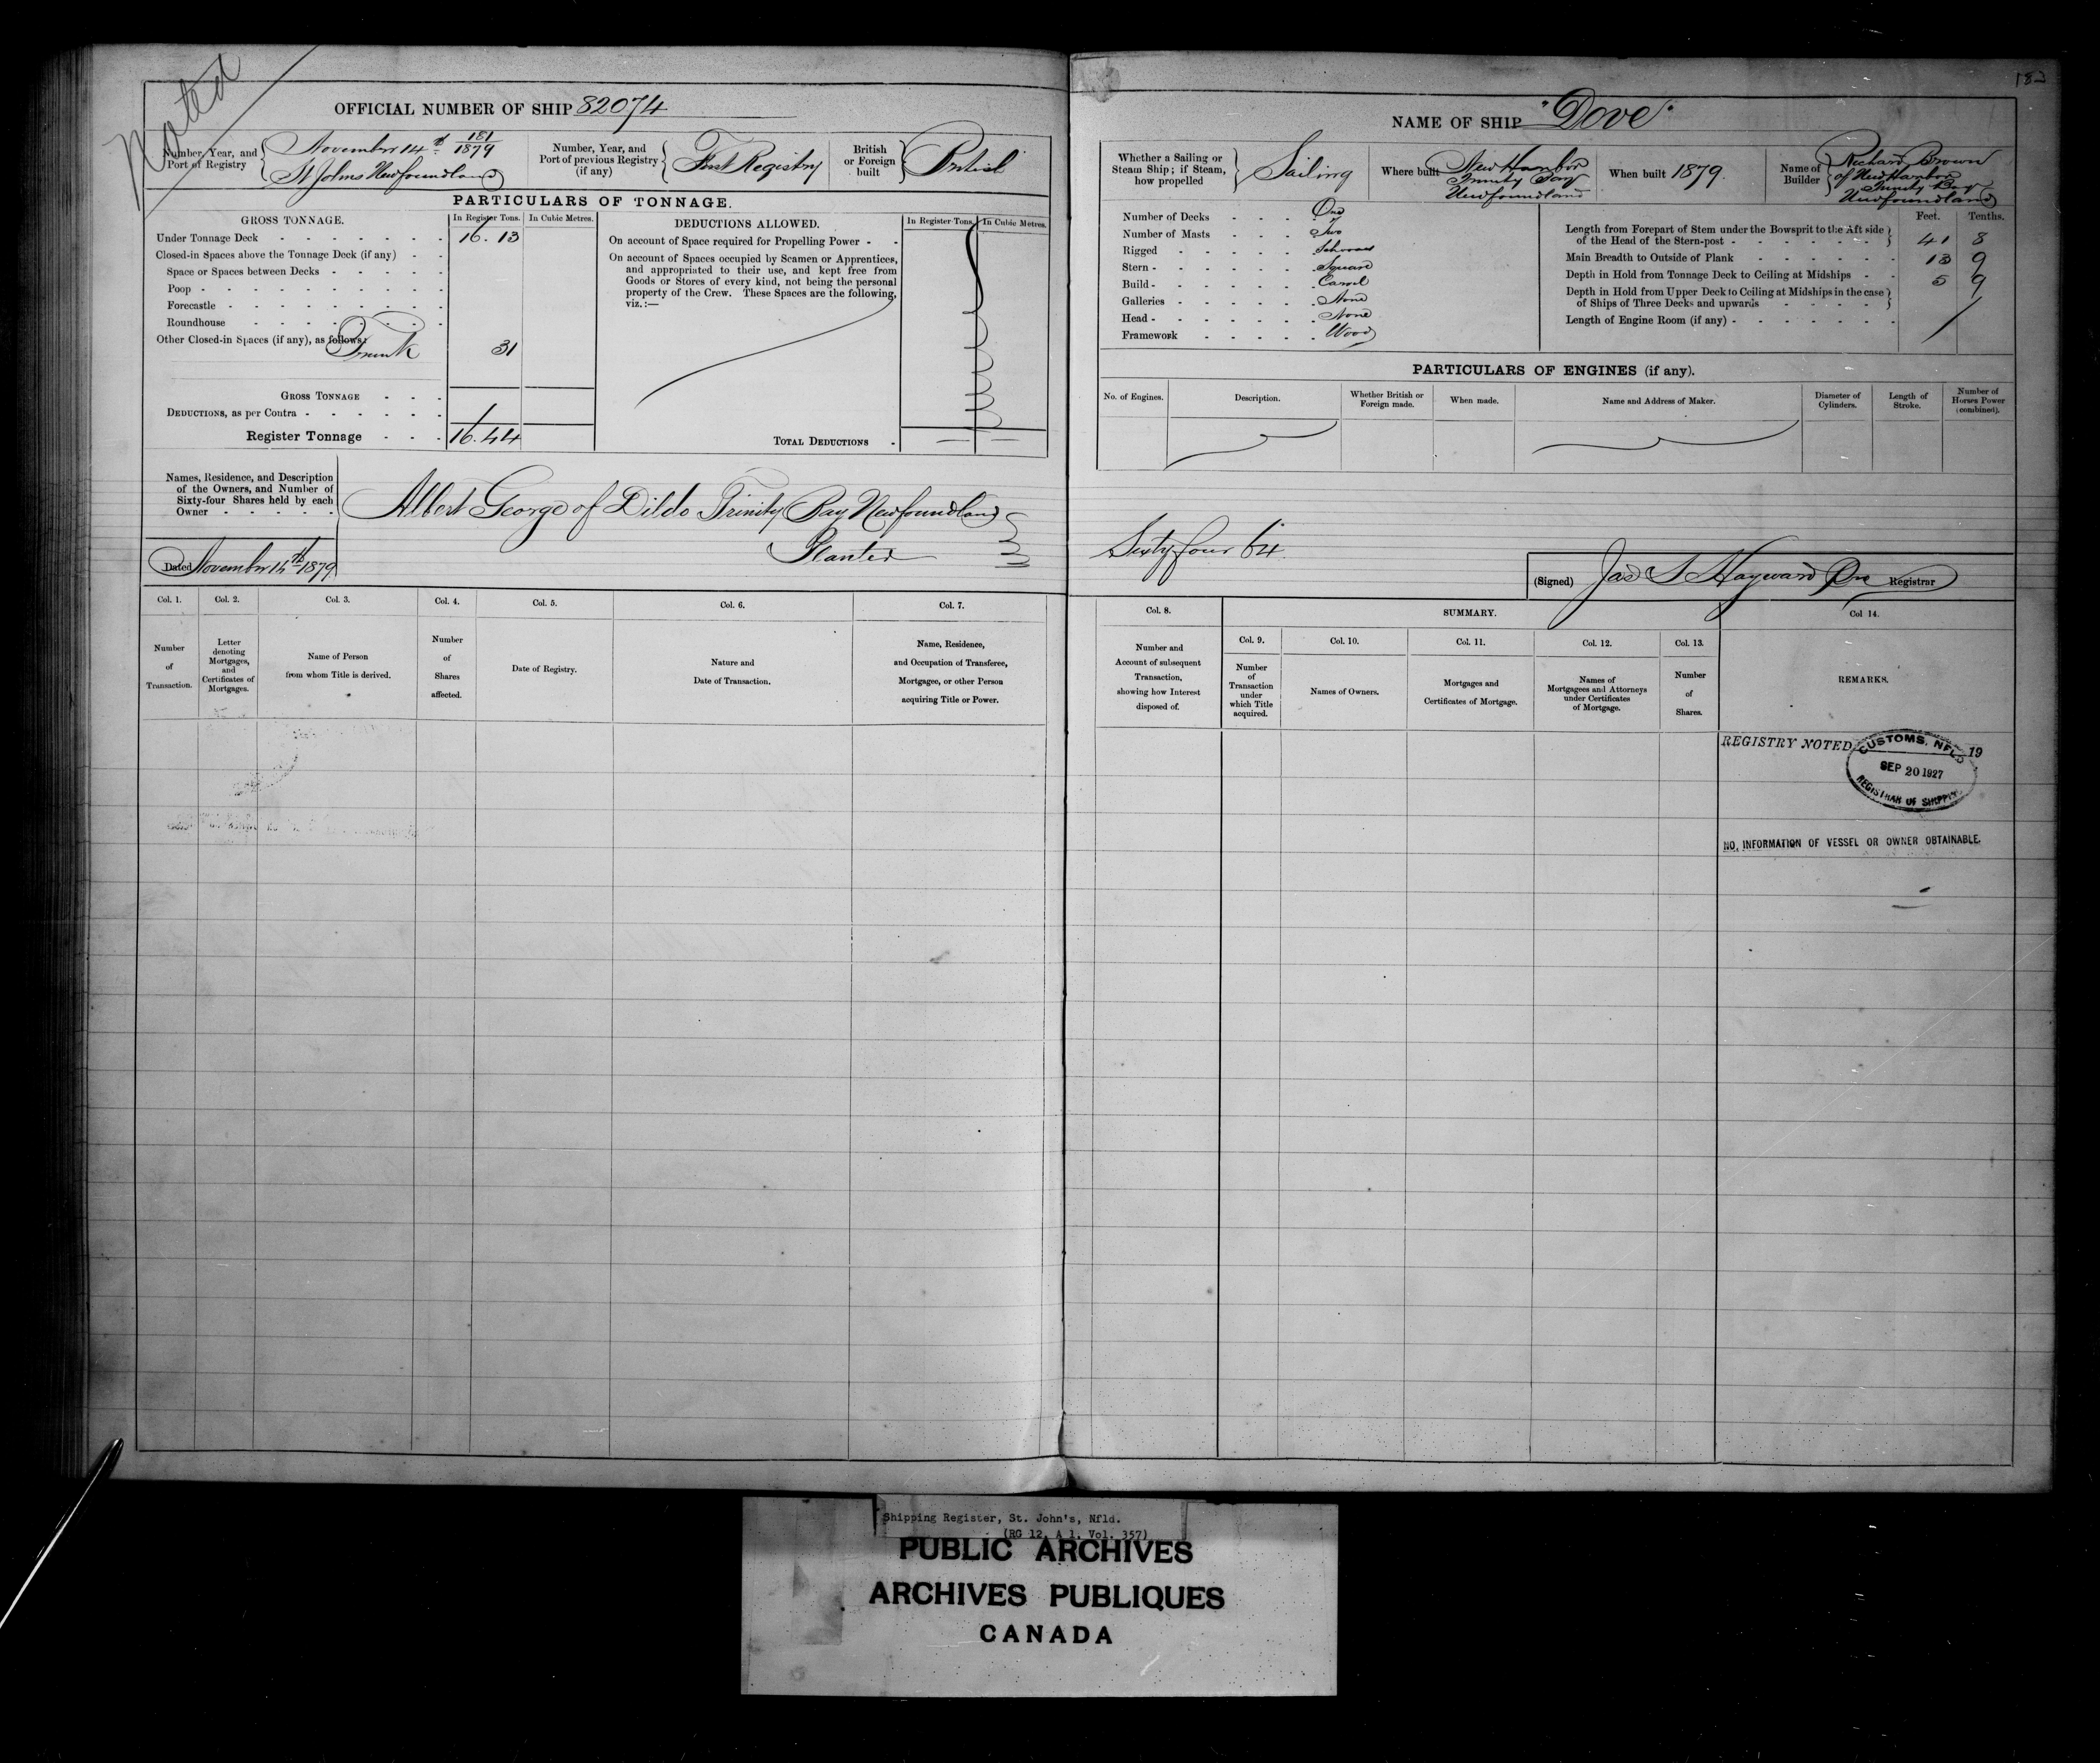 Noted
OFFICIAL NUMBER OF SHIP 82074
Number, Year, and
Port of Registry
November 14th 181/1879
St Johns Newfoundland
Number, Year, and
Port of previous Registry
(if any)
First Registry
British
or Foreign
built
British
PARTICULARS OF TONNAGE.
GROSS TONNAGE.
In Register Tons.
In Cubic Metres.
Under Tonnage Deck 16.13
Closed-in Spaces above the Tonnage Deck (if any)
Space or Spaces between Decks
Poop
Forecastle
Roundhouse
Other Closed-in Spaces (if any), as follows:
Trunk 31
GROSS TONNAGE
DEDUCTIONS, as per Contra
Register Tonnage 16.44
DEDUCTIONS ALLOWED.
In Register Tons.
In Cubic Metres.
On account of Space required for Propelling Power
On account of Spaces occupied by Seamen or Apprentices,
and appropriated to their use, and kept free from
Goods or Stores of every kind, not being the personal
property of the Crew. These Spaces are the following,
viz.:—
TOTAL DEDUCTIONS
Names, Residence, and Description
of the Owners, and Number of
Sixty-four Shares held by each
Owner
Albert George of Dildo Trinity Bay Newfoundland
Planter
Dated November 14th 1879
Col. 1.
Number
of
Transaction.
Col. 2.
Letter
denoting
Mortgages,
and
Certificates of
Mortgages.
Col. 3.
Name of Person
from whom Title is derived.
Col. 4.
Number
of
Shares
affected.
Col. 5.
Date of Registry.
Col. 6.
Nature and
Date of Transaction.
Col. 7.
Name, Residence,
and Occupation of Transferee,
Mortgagee, or other Person
acquiring Title or Power.
NAME OF SHIP "Dove"
Whether a Sailing or
Steam Ship; if Steam,
how propelled
Sailing
Where built
New Harbor
Trinity Bay
Newfoundland
When built 1879.
Name of
Builder
Richard Brown
of New Harbor
Trinity Bay
Newfoundland
Number of Decks One
Number of Masts Two
Rigged Schooner
Stern Square
Build Carvel
Galleries None
Head None
Framework Wood
Feet. Tenths.
Length from Forepart of Stem under the Bowsprit to the Aft side
of the Head of the Stern-post 41 8
Main Breadth to Outside of Plank 13 9
Depth in Hold from Tonnage Deck to Ceiling at Midships 5 9
Depth in Hold from Upper Deck to Ceiling at Midships in the case
of Ships of Three Decks and upwards
Length of Engine Room (if any)
PARTICULARS OF ENGINES (if any).
No. of Engines.
Description.
Whether British or
Foreign made.
When made.
Name and Address of Maker.
Diameter of
Cylinders.
Length of
Stroke.
Number of
Horses Power
(combined).
Sixty four 64
(Signed) Jas S Hayward Registrar
Col. 8.
Number and
Account of subsequent
Transaction,
showing how Interest
disposed of.
SUMMARY.
Col. 9.
Number
of
Transaction
under
which Title
acquired.
Col. 10.
Names of Owners.
Col. 11.
Mortgages and
Certificates of Mortgage.
Col. 12.
Names of
Mortgagees and Attorneys
under Certificates
of Mortgage.
Col. 13.
Number
of
Shares.
Col 14.
REMARKS.
REGISTRY NOTED 19
CUSTOMS, NFLD
SEP 20 1927
REGISTRAR OF SHIPPING
NO INFORMATION OF VESSEL OR OWNER OBTAINABLE.
Shipping Register, St. John's, Nfld.
(RG 12, A 1, Vol. 357)
PUBLIC ARCHIVES
ARCHIVES PUBLIQUES
CANADA